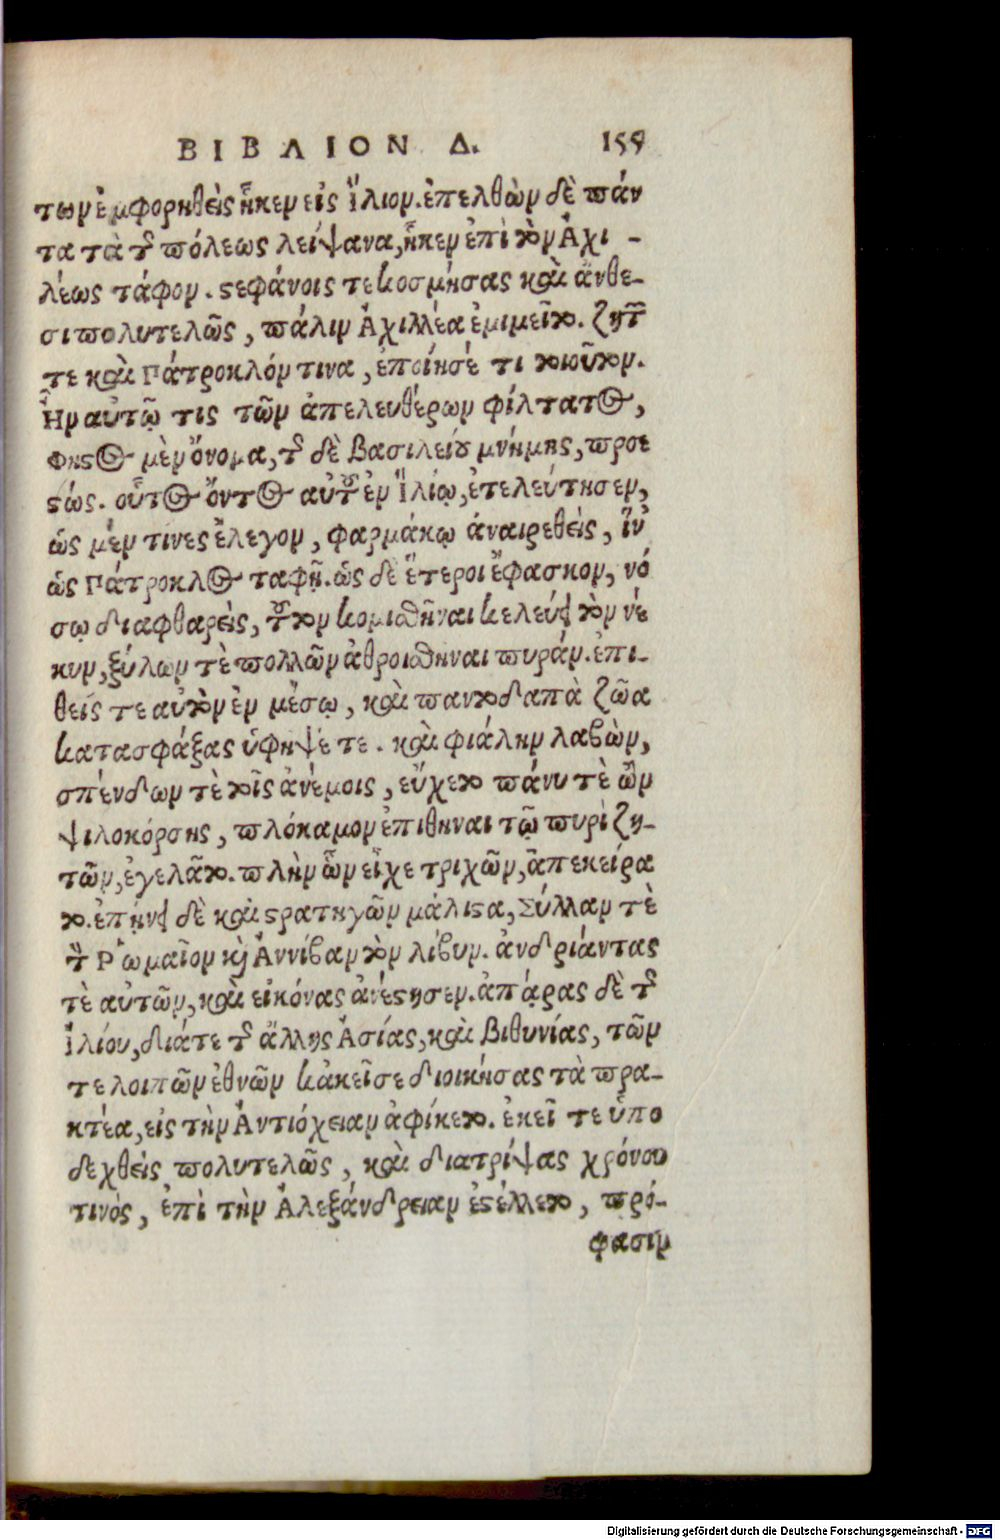 ΒΙΒΛΙΟΝ Δ. 159
των ἐμφορηθεὶς ἧκεν εἰς Ἴλιον. ἐπελθὼν δὲ πάν
τα τὰ τῆς πόλεως λείψανα, ἧκεν ἐπὶ τὸν Ἀχι-
λέως τάφον. στεφάνοις τε κοσμήσας καὶ ἄνθε-
σι πολυτελῶς, πάλιν Ἀχιλλέα ἐμιμεῖτο. ζητῶν
τε καὶ Πάτροκλόν τινα, ἐποίησέ τι τοιοῦτον.
Ἦν αὐτῷ τις τῶν ἀπελευθέρων φίλτατος,
Φῆστος μὲν ὄνομα, τῆς δὲ βασιλείου μνήμης, προε
στώς. οὗτος ὄντος αὐτοῦ ἐν Ἰλίῳ, ἐτελεύτησεν,
ὡς μέν τινες ἔλεγον, φαρμάκῳ ἀναιρεθεὶς, ἵν᾽
ὡς Πάτροκλος ταφῇ. ὡς δὲ ἕτεροι ἔφασκον, νό
σῳ διαφθαρεὶς, τοῦτον κομισθῆναι κελεύει τὸν νέ
κυν, ξύλων τὲ πολλῶν ἀθροισθῆναι πυράν. ἐπι-
θείς τε αὐτὸν ἐν μέσῳ, καὶ παντοδαπὰ ζῶα
κατασφάξας ὑφῆψέ τε. καὶ φιάλην λαβὼν,
σπένδων τὲ τοῖς ἀνέμοις, εὔχετο πάνυ τὲ ὢν
ψιλοκόρσης, πλόκαμον ἐπιθῆναι τῷ πυρὶ ζη-
τῶν, ἐγελᾶτο. πλὴν ὧν εἶχε τριχῶν, ἀπεκείρα
το. ἐπῄνει δὲ καὶ στρατηγῶν μάλιστα, Σύλλαν τὲ
τὸν Ῥωμαῖον καὶ Ἀννίβαν τὸν λίβυν. ἀνδριάντας
τὲ αὐτῶν, καὶ εἰκόνας ἀνέστησεν. ἀπάρας δὲ τῆς
Ἰλίου, διά τε τῆς ἄλλης Ἀσίας, καὶ Βιθυνίας, τῶν
τε λοιπῶν ἐθνῶν κἀκεῖσε διοικήσας τὰ πρα-
κτέα, εἰς τὴν Ἀντιόχειαν ἀφίκετο. ἐκεῖ τε ὑπο
δεχθεὶς πολυτελῶς, καὶ διατρίψας χρόνου
τινὸς, ἐπὶ τὴν Ἀλεξάνδρειαν ἐστέλλετο, πρό-
φασιν
Digitalisierung gefördert durch die Deutsche Forschungsgemeinschaft - DFG